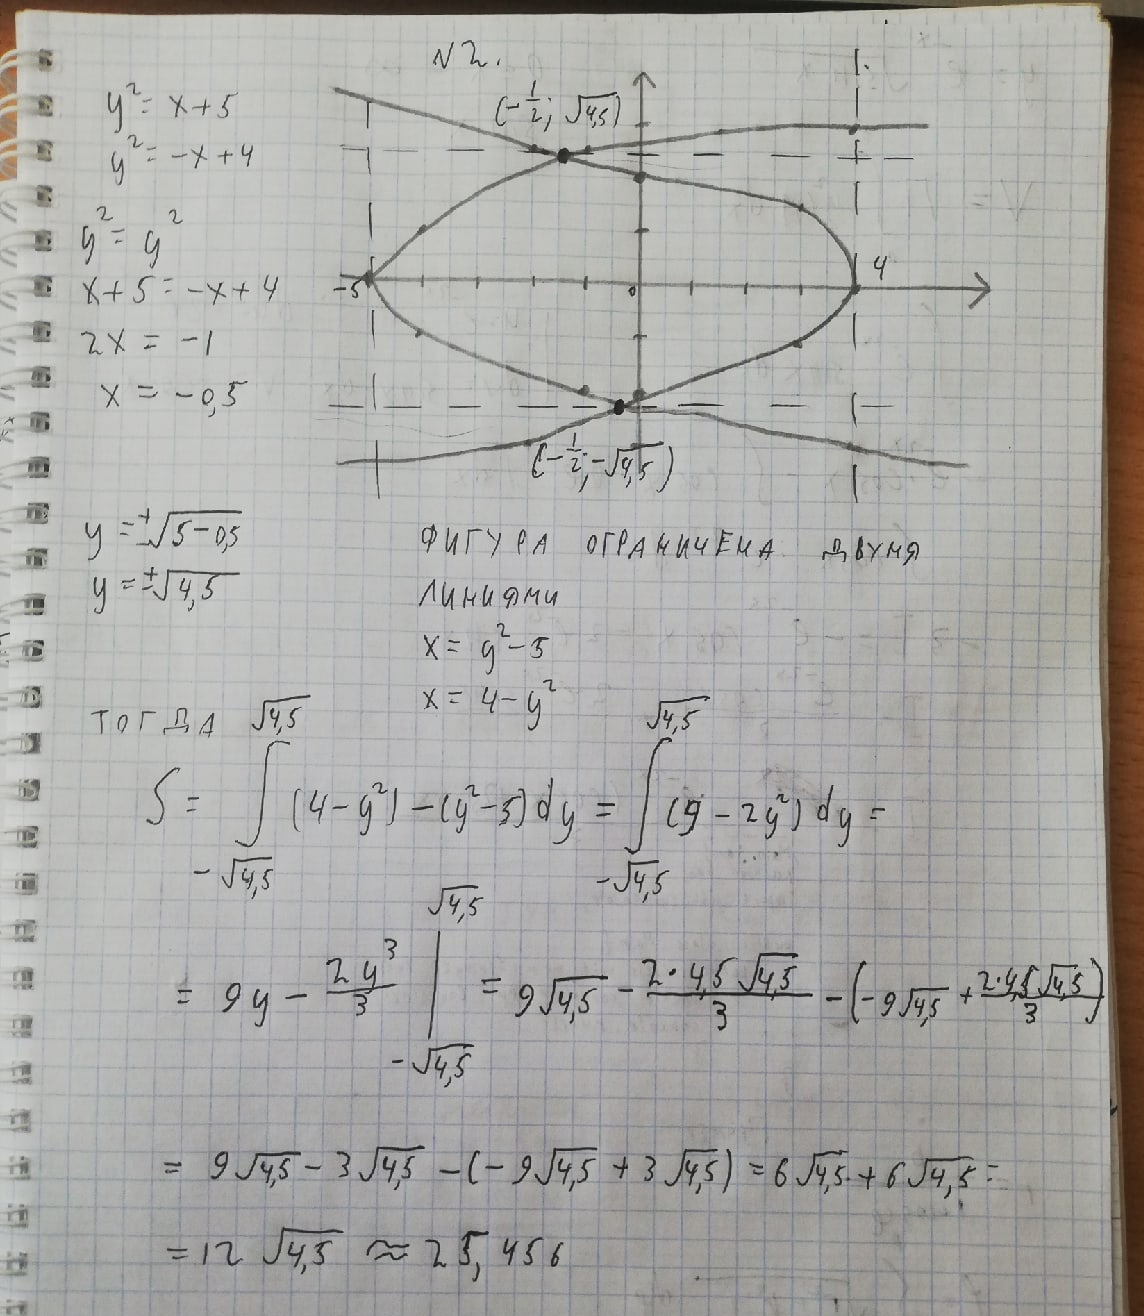 N2.
y² = x+5
y² = -x+4
y² = y²
x+5 = -x+4
2x = -1
x = -0,5
(-1/2; √4,5)
-5
0
4
(-1/2; -√4,5)
y = ±√5-0,5
y = ±√4,5
ФИГУРА ОГРАНИЧЕНА ДВУМЯ
ЛИНИЯМИ
x = y²-5
x = 4-y²
ТОГДА
S = ∫_{-√4,5}^{√4,5} (4-y²)-(y²-5)dy = ∫_{-√4,5}^{√4,5} (9-2y²)dy =
= 9y - 2y³/3 |_{-√4,5}^{√4,5} = 9√4,5 - 2·4,5√4,5/3 - (-9√4,5 + 2·4,5√4,5/3)
= 9√4,5 - 3√4,5 - (-9√4,5 + 3√4,5) = 6√4,5 + 6√4,5 =
= 12√4,5 ≈ 25,456